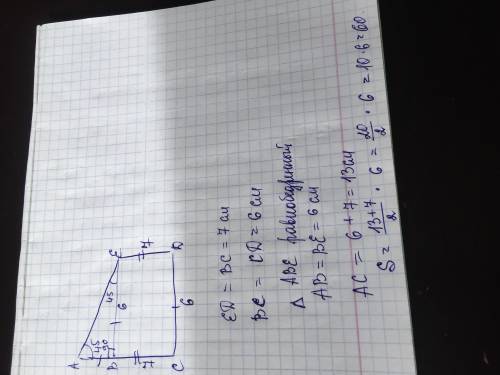 A
45
90
B
6
45
E
7
7
C
6
D
ED = BC = 7 см
BE = CD = 6 см
Δ ABE равнобедренный
AB = BE = 6 см
AC = 6 + 7 = 13 см
S = 13+7/2 · 6 = 20/2 · 6 = 10·6=60.